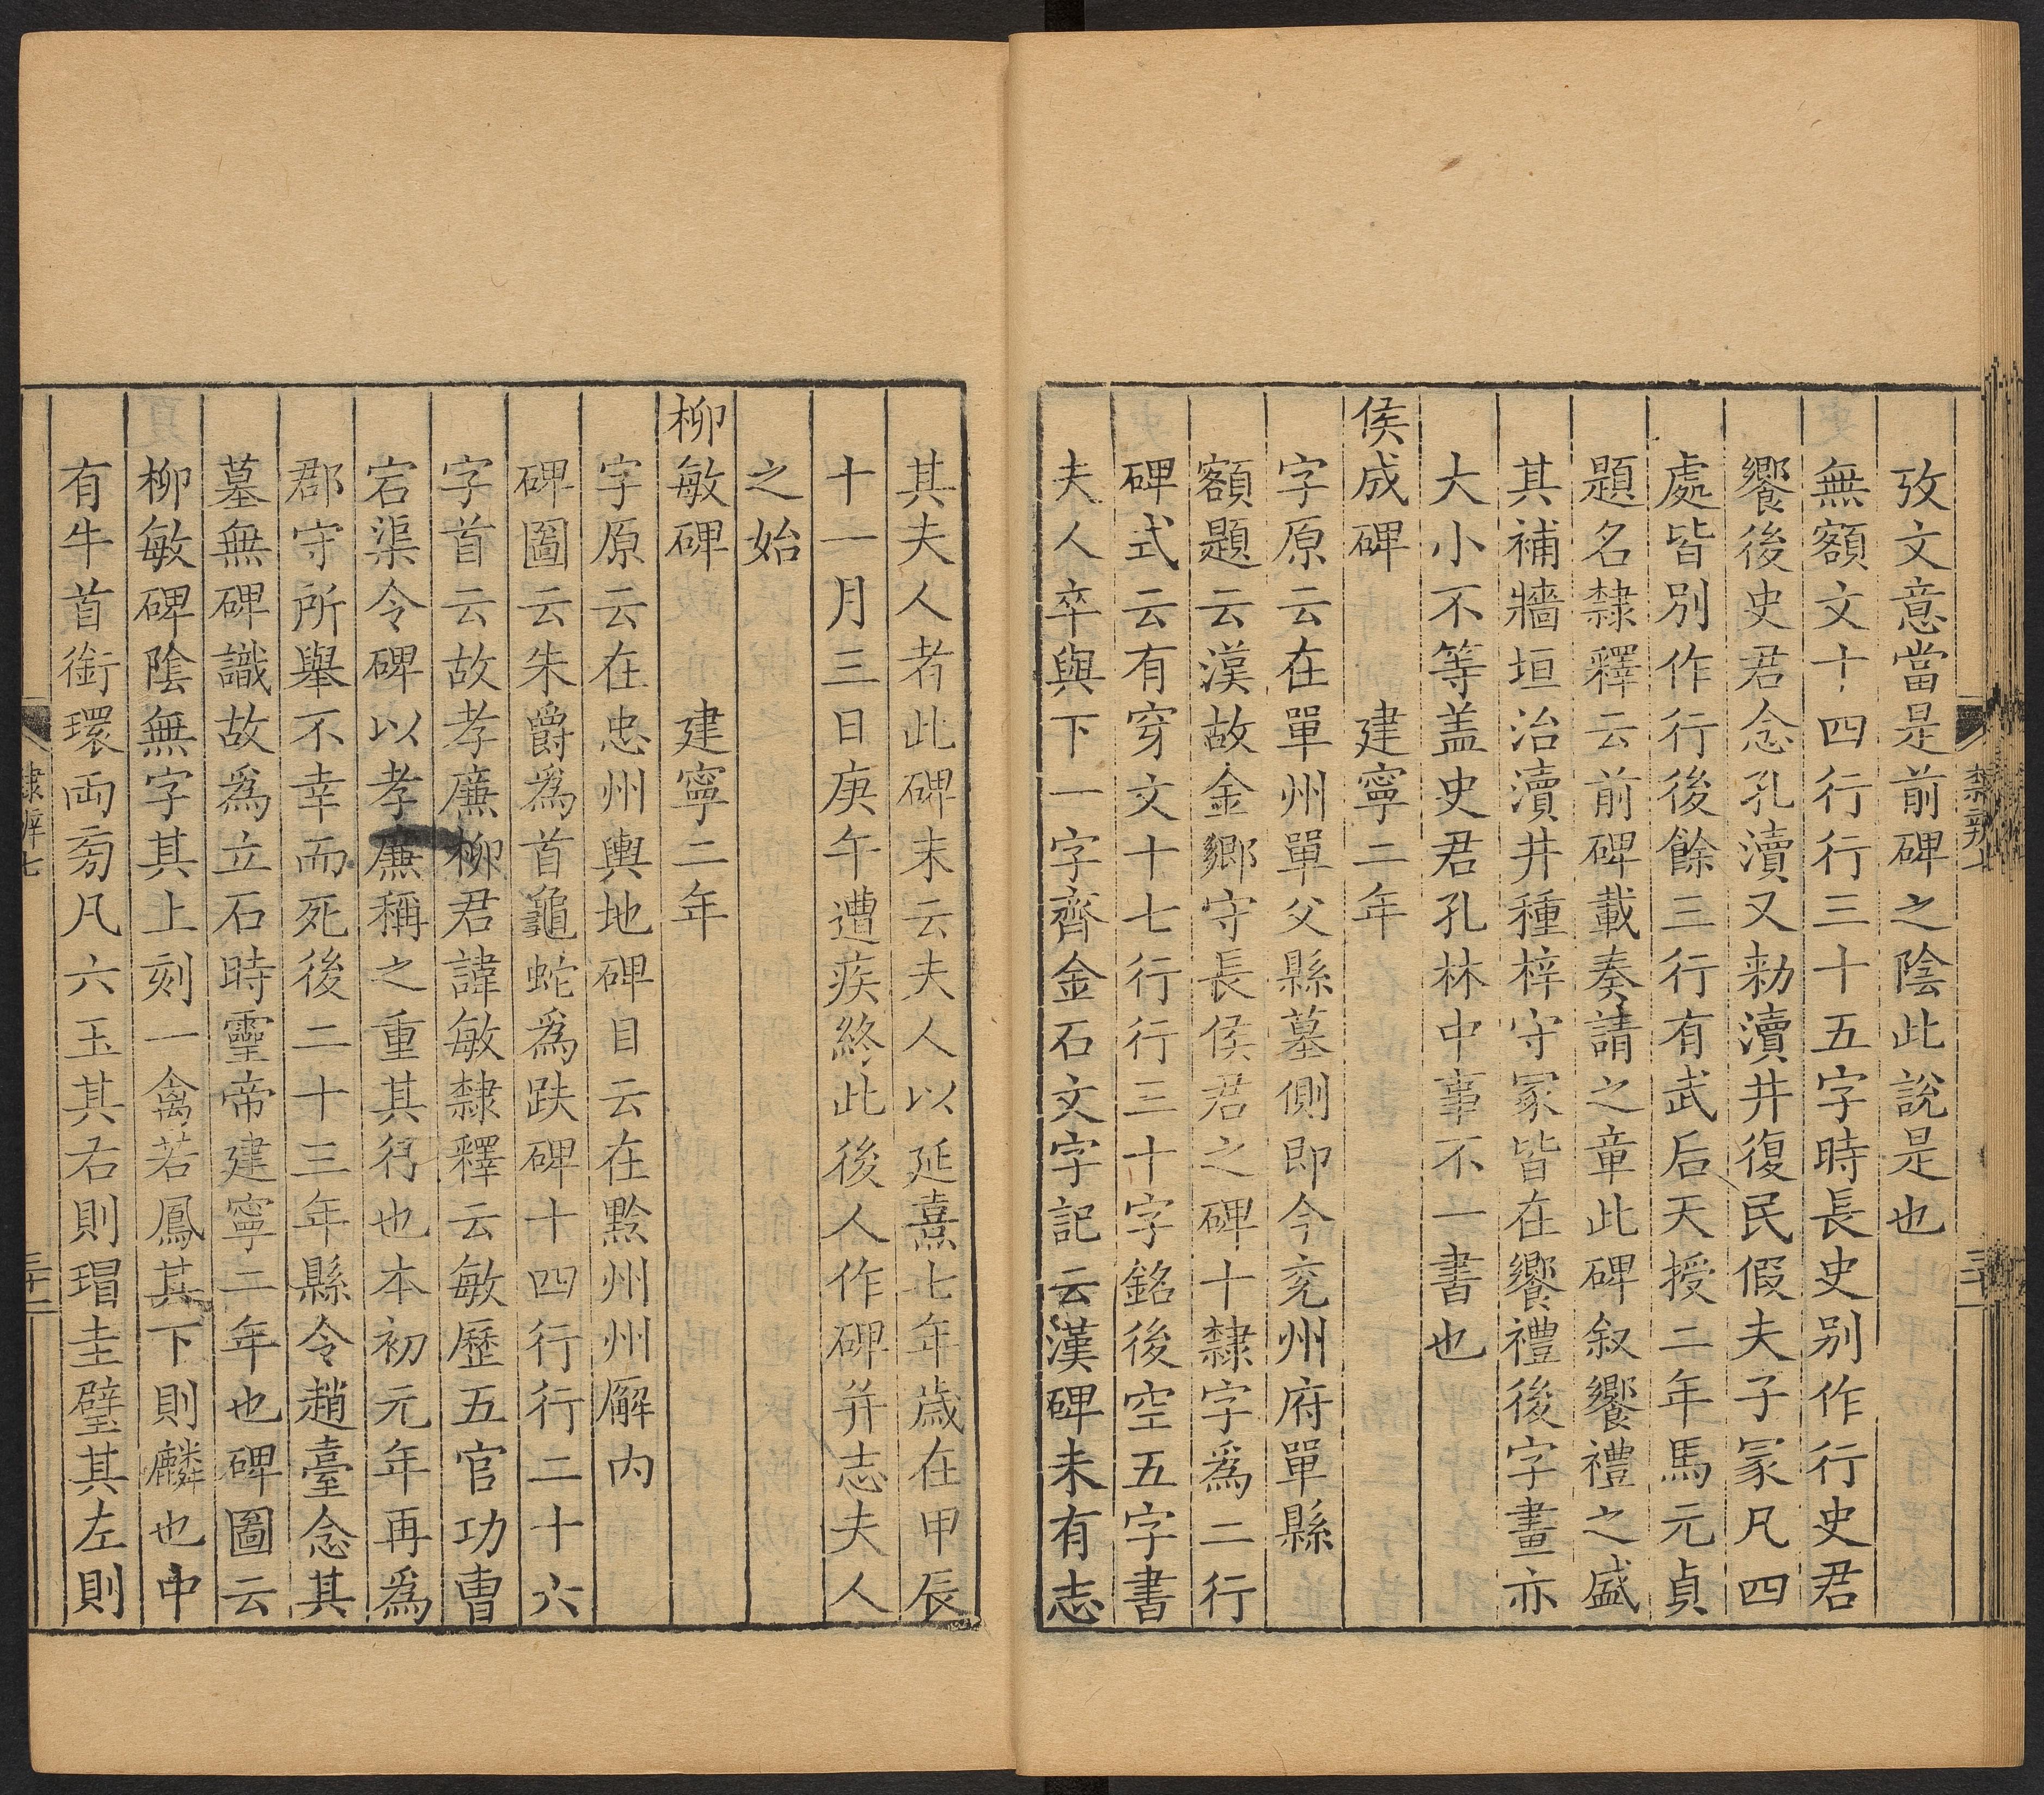 攷文意當是前碑之陰此說是也
無額文十四行行三十五字時長史别作行史君
饗後史君念孔瀆又勑瀆井復民假夫子冢凡四
處皆別作行後餘三行有武后天授二年馬元貞
題名隸釋云前碑載奏請之章此碑叙饗禮之盛
其補牆垣治瀆井種梓守冢皆在饗禮後字畫亦
大小不等盖史君孔林中事不一書也
侯成碑 建寧二年
字原云在單州單父縣墓側即今兖州府單縣
額題云漢故金鄉守長侯君之碑十隸字爲二行
碑式云有穿文十七行行三十字銘後空五字書
夫人卒與下一字齊金石文字記云漢碑未有志
其夫人者此碑末云夫人以延熹七年歲在甲辰
十一月三日庚午遭疾終此後人作碑并志夫人
之始
柳敏碑 建寧二年
字原云在忠州輿地碑目云在黔州州廨内
碑圖云朱爵爲首龜蛇爲趺碑十四行行二十六
字首云故孝廉柳君諱敏隸釋云敏歷五官功曹
宕渠令碑以孝廉稱之重其行也本初元年再爲
郡守所舉不幸而死後二十三年縣令趙臺念其
墓無碑識故爲立石時靈帝建寧二年也碑圖云
柳敏碑陰無字其上刻一禽若鳳其下則麟也中
有牛首銜環両旁凡六玉其右則瑁圭璧其左則
隸辨七
三十一